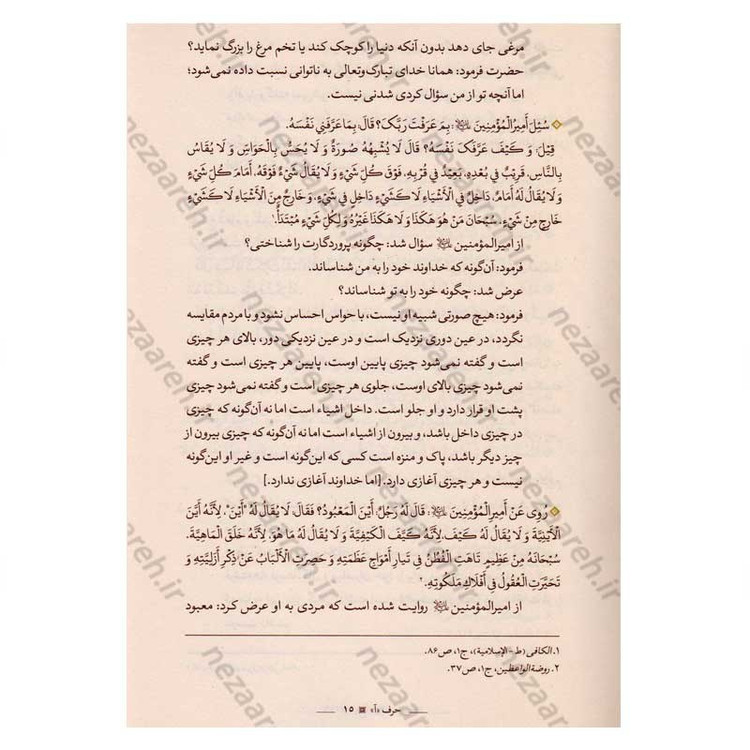 مرغی جای دهد بدون آنکه دنیا را کوچک کند یا تخم مرغ را بزرگ نماید؟
حضرت فرمود: همانا خدای تبارک‌وتعالی به ناتوانی نسبت داده نمی‌شود؛
اما آنچه تو از من سؤال کردی شدنی نیست.
سُئِلَ أَمِيرُالْمُؤْمِنِينَ: بِمَ عَرَفْتَ رَبَّكَ؟ قَالَ: بِمَا عَرَّفَنِي نَفْسَهُ.
قِيلَ: وَ كَيْفَ عَرَّفَكَ نَفْسَهُ؟ قَالَ لَا يُشْبِهُهُ صُورَةٌ وَ لَا يُحَسُّ بِالْحَوَاسِّ وَ لَا يُقَاسُ
بِالنَّاسِ. قَرِيبٌ فِي بُعْدِهِ، بَعِيدٌ فِي قُرْبِهِ. فَوْقَ كُلِّ شَيْءٍ وَ لَا يُقَالُ شَيْءٌ فَوْقَهُ. أَمَامَ كُلِّ شَيْءٍ
وَ لَا يُقَالُ لَهُ أَمَامٌ. دَاخِلٌ فِي الْأَشْيَاءِ لَا كَشَيْءٍ دَاخِلٍ فِي شَيْءٍ. وَ خَارِجٌ مِنَ الْأَشْيَاءِ لَا كَشَيْءٍ
خَارِجٍ مِنْ شَيْءٍ. سُبْحَانَ مَنْ هُوَ هَكَذَا وَ لَا هَكَذَا غَيْرُهُ وَ لِكُلِّ شَيْءٍ مُبْتَدَأٌ.¹
از امیرالمؤمنین سؤال شد: چگونه پروردگارت را شناختی؟
فرمود: آن‌گونه که خداوند خود را به من شناساند.
عرض شد: چگونه خود را به تو شناساند؟
فرمود: هیچ صورتی شبیه او نیست، با حواس احساس نشود و با مردم مقایسه
نگردد، در عین دوری نزدیک است و در عین نزدیکی دور، بالای هر چیزی
است و گفته نمی‌شود چیزی پایین اوست، پایین هر چیزی است و گفته
نمی‌شود چیزی بالای اوست، جلوی هر چیزی است و گفته نمی‌شود چیزی
پشت او قرار دارد و او جلو است. داخل اشیاء است اما نه آن‌گونه که چیزی
در چیزی داخل باشد، و بیرون از اشیاء است اما نه آن‌گونه که چیزی بیرون از
چیز دیگر باشد، پاک و منزه است کسی که این‌گونه است و غیر او این‌گونه
نیست و هر چیزی آغازی دارد. [اما خداوند آغازی ندارد.]
رُوِيَ عَنْ أَمِيرِالْمُؤْمِنِينَ: قَالَ لَهُ رَجُلٌ: أَيْنَ الْمَعْبُودُ؟ فَقَالَ: لَا يُقَالُ لَهُ "أَيْنَ". لِأَنَّهُ أَيَّنَ
الْأَيْنِيَّةَ وَ لَا يُقَالُ لَهُ كَيْفَ. لِأَنَّهُ كَيَّفَ الْكَيْفِيَّةَ وَ لَا يُقَالُ لَهُ مَا هُوَ. لِأَنَّهُ خَلَقَ الْمَاهِيَّةَ.
سُبْحَانَهُ مِنْ عَظِيمٍ تَاهَتِ الْفِطَنُ فِي تَيَارِ أَمْوَاجِ عَظَمَتِهِ وَ حَصِرَتِ الْأَلْبَابُ عَنْ ذِكْرِ أَزَلِيَّتِهِ وَ
تَحَيَّرَتِ الْعُقُولُ فِي أَفْلَاكِ مَلَكُوتِهِ.²
از امیرالمؤمنین روایت شده است که مردی به او عرض کرد: معبود
۱. الکافی (ط-الإسلامیة)، ج۱، ص۸۶.
۲. روضة الواعظین، ج۱، ص۳۷.
حرف «آ» ۱۵
nezaareh.ir